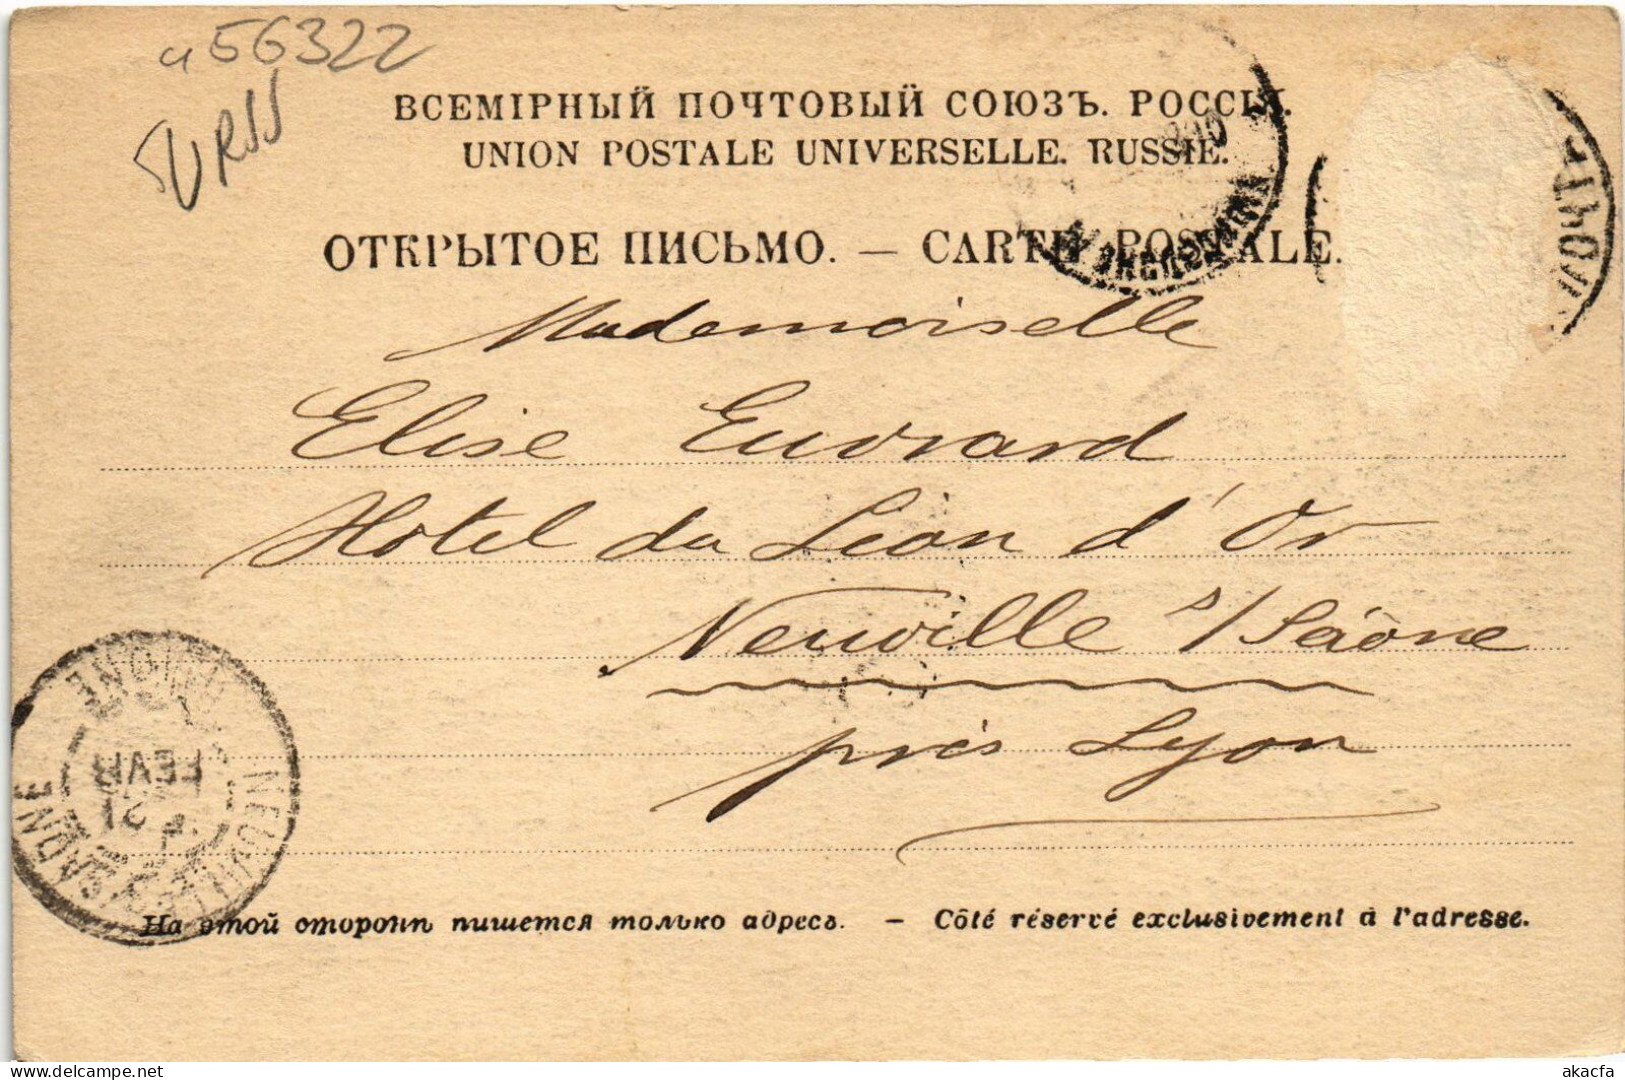 a56322
URSS
ВСЕМІРНЫЙ ПОЧТОВЫЙ СОЮЗЪ. РОССІЯ.
UNION POSTALE UNIVERSELLE. RUSSIE.
ОТКРЫТОЕ ПИСЬМО. — CARTE POSTALE.
Mademoiselle
Elise Euvrard
Hotel du Lion d'Or
Neuville s/Saône
près Lyon
NEUVILLE-S-SAONE
21
FEVR
RHONE
На этой сторонѣ пишется только адресъ. — Côté réservé exclusivement à l'adresse.
akacfa